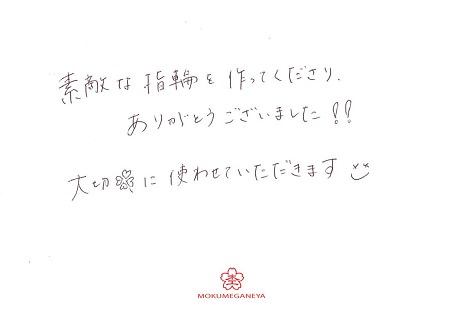 素敵な指輪を作ってくださり、
ありがとうございました!!
大切に使わせていただきます
MOKUMEGANEYA